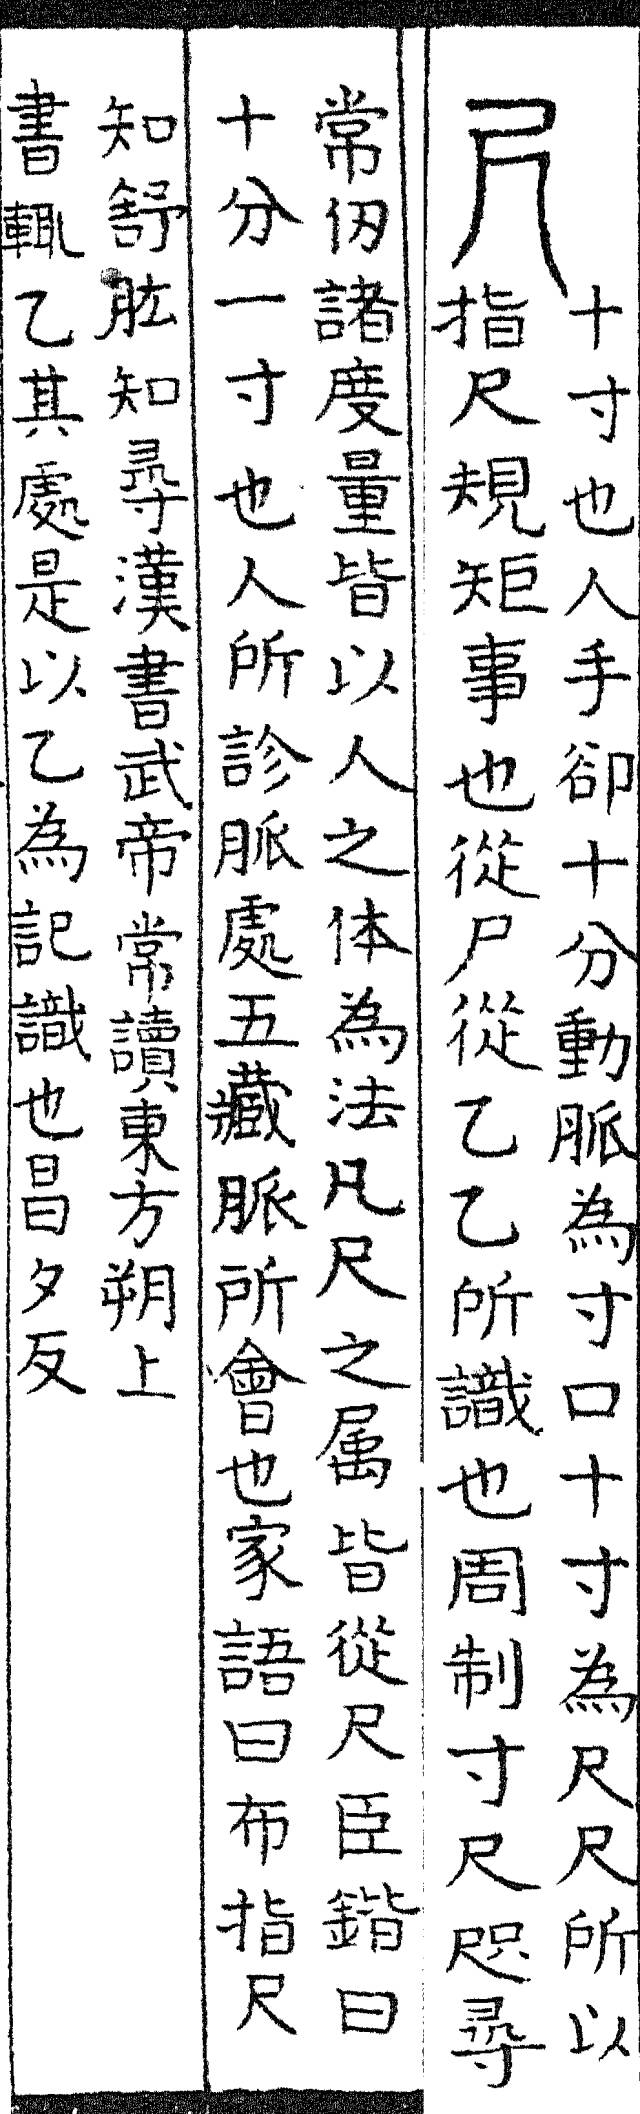 尺
十寸也人手卻十分動脈為寸口十寸為尺尺所以
指尺規矩事也從尸從乙乙所識也周制寸尺咫尋
常仞諸度量皆以人之体為法凡尺之属皆從尺臣鍇曰
十分一寸也人所診脈處五藏脈所會也家語曰布指尺
知舒肱知尋漢書武帝常讀東方朔上
書輙乙其處是以乙為記識也昌夕反